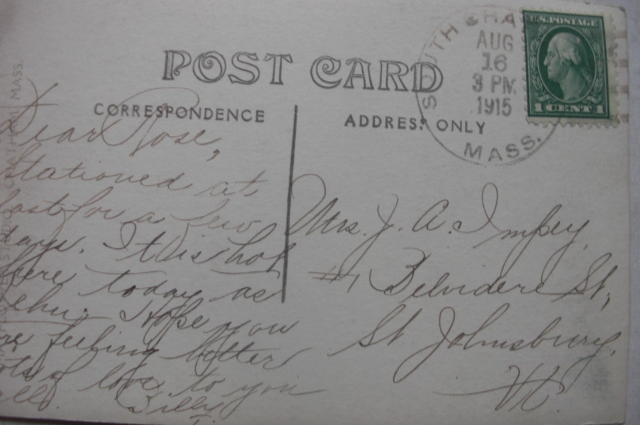 POST CARD
CORRESPONDENCE
ADDRESS ONLY
SOUTH CHA
AUG
16
3 PM
1915
MASS.
U.S. POSTAGE
1 CENT 1
CHATHAM, MASS.
Dear Rose,
Stationed at
last for a few
days. It is hot
here today as
Hope you
are feeling better
lots of love to you
all. Billy.
Mrs. J. A. Impey,
#1 Belvidere St,
St Johnsbury,
Vt.